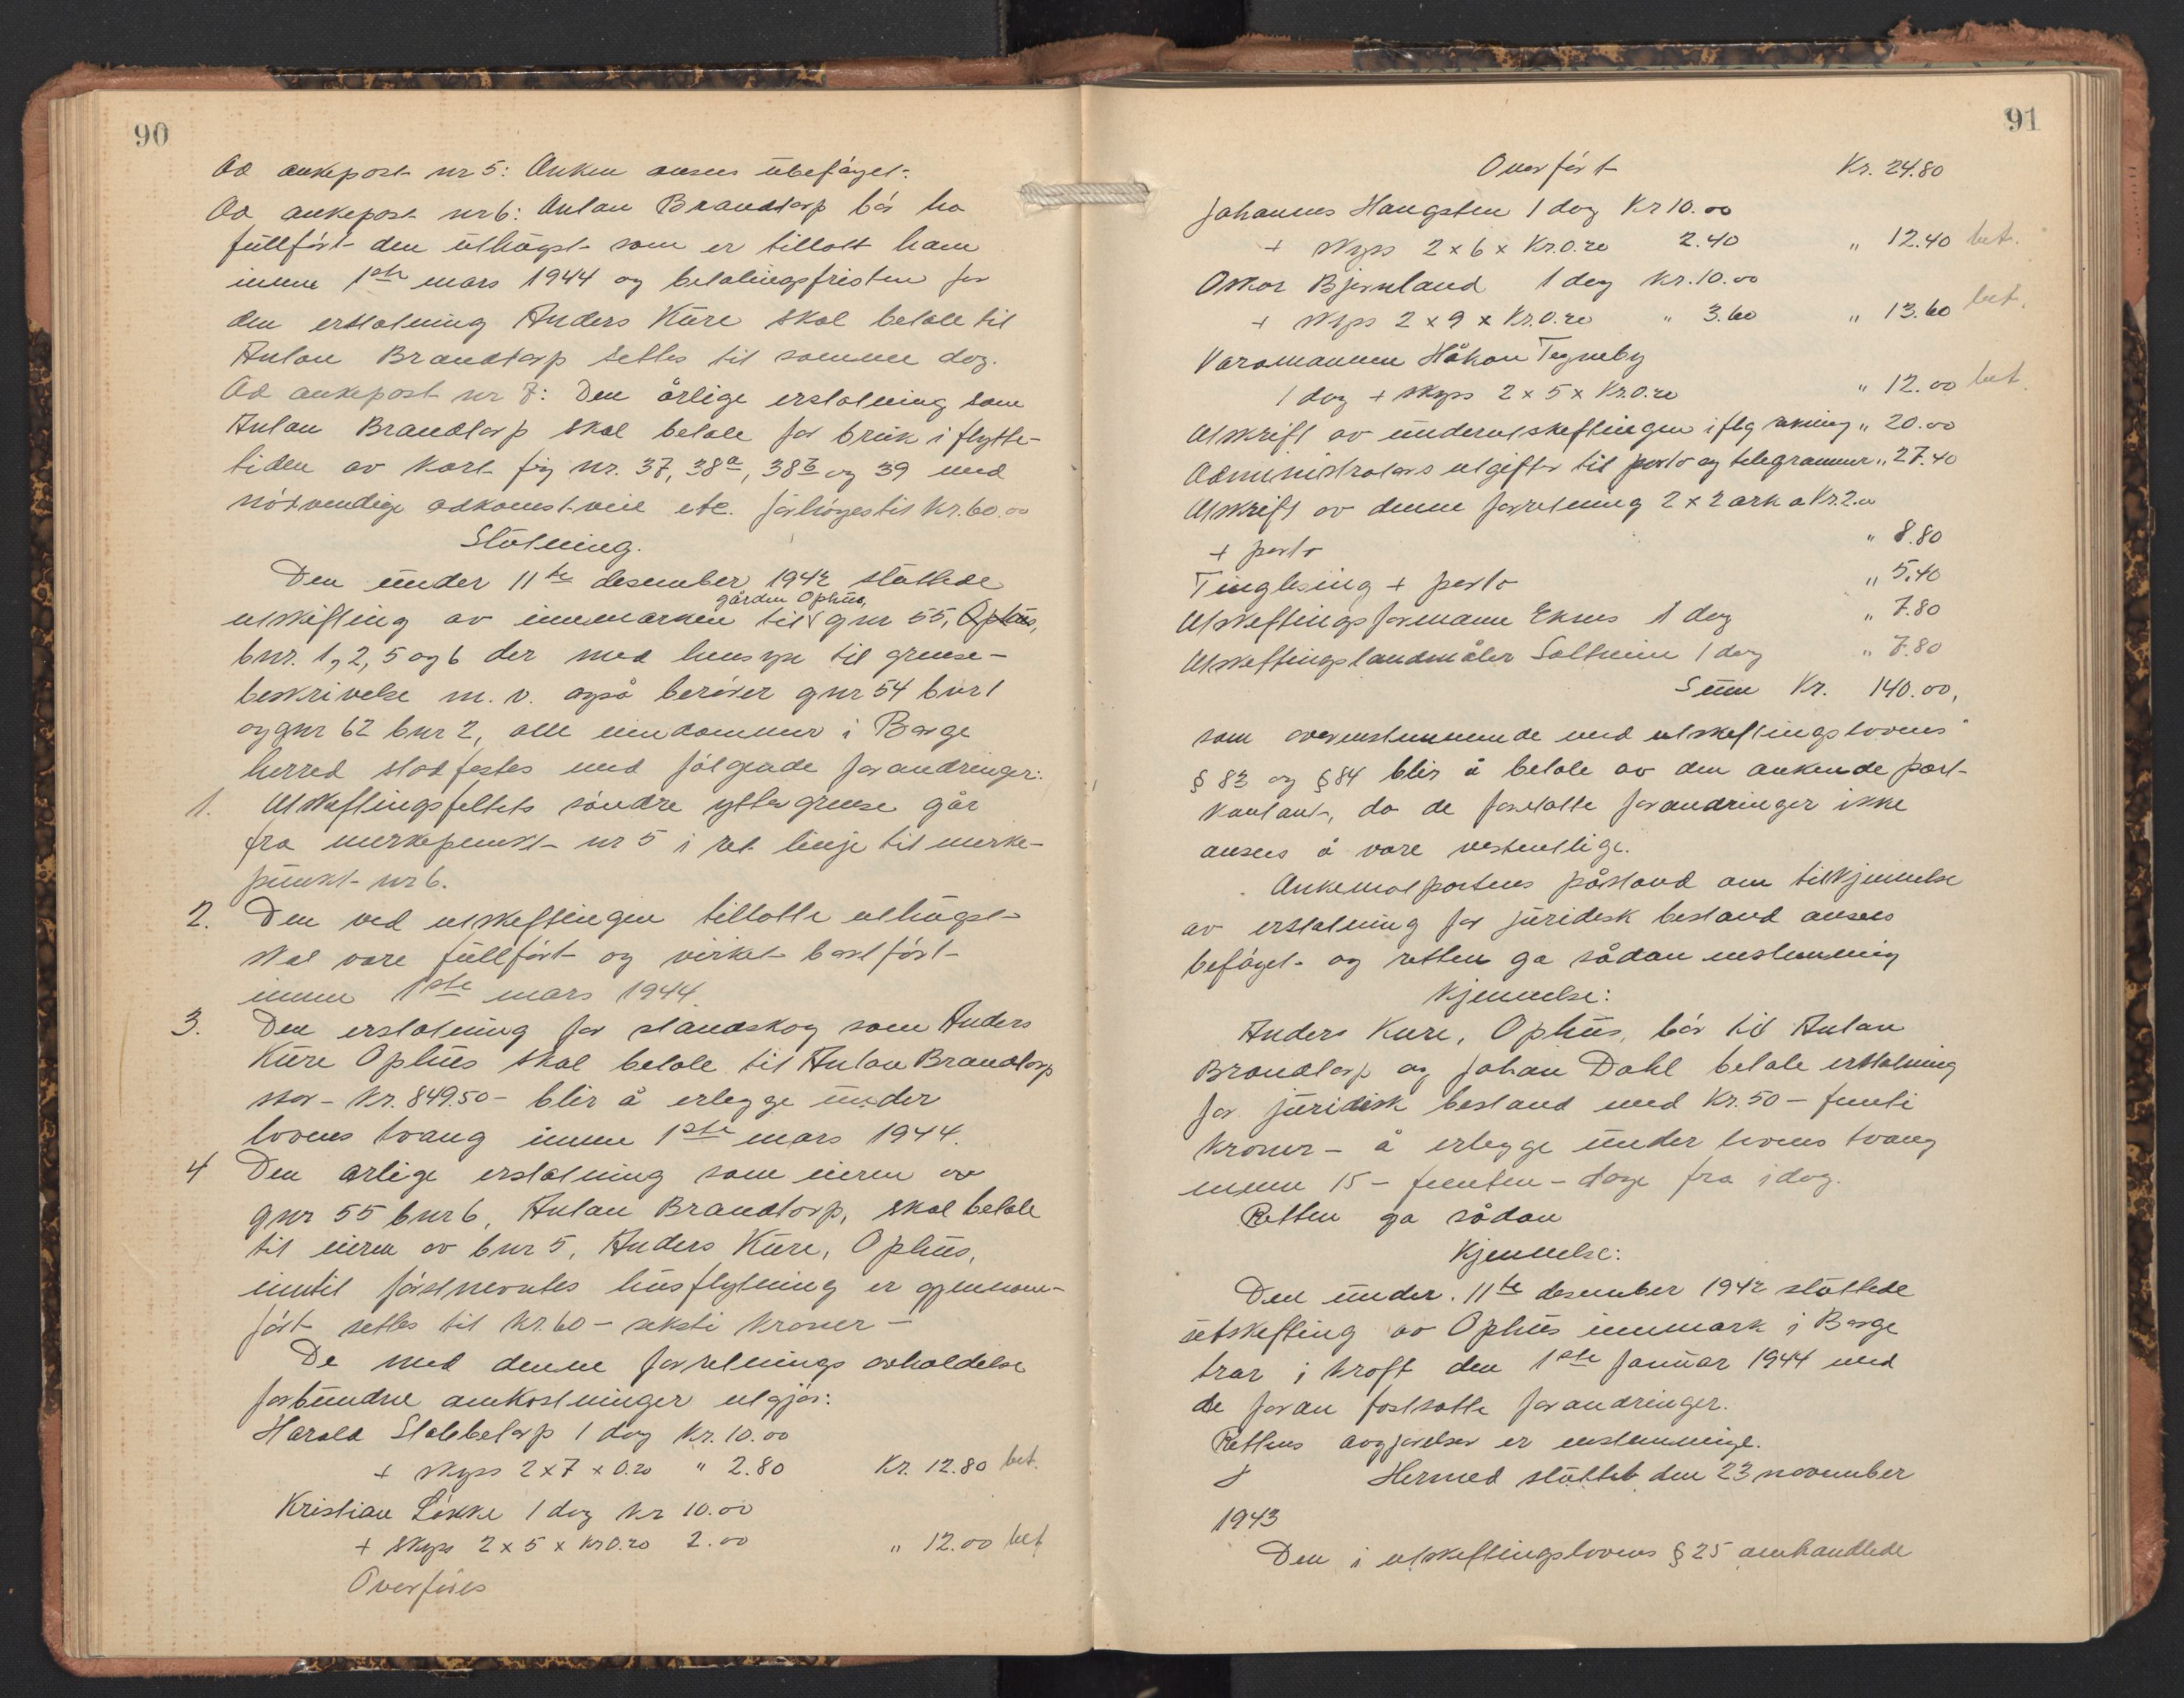 90
Ad ankepost nr 5: Anken anses ubeføyet.
Ad ankepost nr 6: Anton Brandtorp bør ha
fullført den uthogst som er tillatt ham
innen 1ste mars 1944 og betalingsfristen for
den erstatning Anders Kure skal betale til
Anton Brandtorp settes til samme dag.
Ad ankepost nr 7: Den årlige erstatning som
Anton Brandtorp skal betale for bruk i flytte-
tiden av kart fig nr. 37, 38a, 38b og 39 med
nødvendige adkomstveie etc. forhøyes til Kr. 60.00
Slutning.
Den under 11te desember 1942 sluttede
gården Ophus,
utskifting av innmarken til gnr 55, Ophus,
bnr. 1, 2, 5 og 6 der med hensyn til grense-
beskrivelse m. v. også berører gnr 54 bnr 1
og gnr 62 bnr 2, alle eiendommer i Borge
herred stadfestes med følgende forandringer:
1. Utskiftingsfeltets søndre yttergrense går
fra merkepunkt nr 5 i ret linje til merke-
punkt nr 6.
2. Den ved utskiftingen tillatte uthogst
skal være fullført og virket bortført
innen 1ste mars 1944.
3. Den erstatning for standskog som Anders
Kure Ophus skal betale til Anton Brandtorp
stor - Kr. 849.50 - blir å erlegge under
lovens tvang innen 1ste mars 1944.
4 Den årlige erstatning som eieren av
gnr 55 bnr 6, Anton Brandtorp, skal betale
til eieren av bnr 5, Anders Kure, Ophus,
inntil førstnevntes husflytning er gjennom-
ført settes til kr. 60 - seksti kroner -
De med denne forretnings avholdelse
forbundne omkostninger utgjør:
Harald Stabbetorp 1 dag Kr. 10.00
+ skyss 2 x 7 x 0.20 " 2.80 Kr. 12.80 bet.
Kristian Løkke 1 dag kr 10.00
+ skyss 2 x 5 x kr 0.20 2.00 " 12.00 bet
Overføres
91
Overført Kr. 24.80
Johannes Haugsten 1 dag Kr 10.00
+ skyss 2 x 6 x Kr. 0.20 2.40 " 12.40 bet.
Oskar Bjørnland 1 dag kr. 10.00
+ skyss 2 x 9 x Kr. 0.20 " 3.60 " 13.60 bet.
Varamannen Håkon Tegneby
1 dag + skyss 2 x 5 x Kr. 0.20 " 12.00 bet.
Utskrift av underutskiftingen iflg rekning " 20.00
Administrators utgifter til porto og telegrammer " 27.40
Utskrift av denne forretning 2 x 2 ark a Kr. 2.00
+ porto " 8.80
Tinglesing + porto " 5.40
Utskiftingsformann Eknes 1 dag " 7.80
Utskiftingslandmåler Solheim 1 dag " 7.80
Sum Kr. 140.00,
som overenstemmende med utskiftingslovens
§ 82 og § 84 blir å betale av den ankende part
kontant, da de foretatte forandringer ikke
anses å være vesentlige.
Ankemotpartens påstand om tilkjennelse
av erstatning for juridisk bestand anses
beføyet og retten ga sådan enstemmig
Kjennelse:
Anders Kure, Ophus, bør til Anton
Brandtorp og Johan Dahl betale erstatning
for juridisk bestand med Kr. 50 - femti
kroner - å erlegge under lovens tvang
innen 15 - femten - dage fra idag.
Retten ga sådan
Kjennelse:
Den under 11te desember 1942 sluttede
utskifting av Ophus innmark i Borge
trær i kraft den 1ste januar 1944 med
de foran fastsatte forandringer.
Rettens avgjørelser er enstemmige.
Hermed sluttet den 23 november
1943
Den i utskiftingslovens § 25 omhandlede